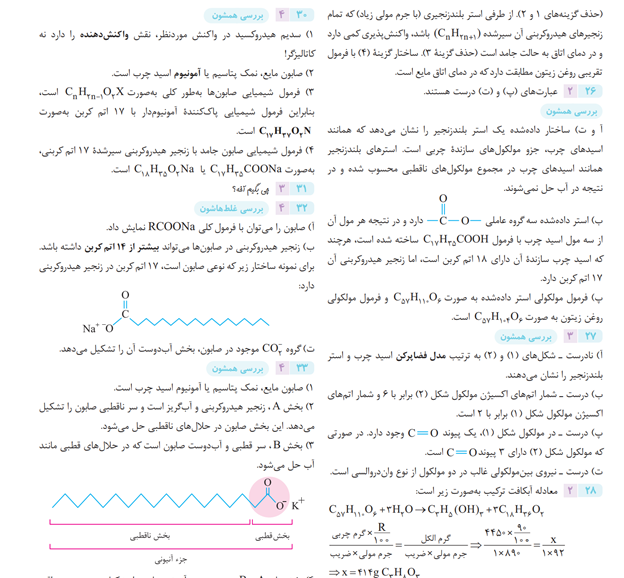 (حذف گزینه‌های ۱ و ۲). از طرفی استر بلندزنجیری (با جرم مولی زیاد) که تمام
زنجیرهای هیدروکربنی آن سیرشده (CnH2n+1) باشد، واکنش‌پذیری کمی دارد
و در دمای اتاق به حالت جامد است (حذف گزینهٔ ۳). ساختار گزینهٔ (۴) با فرمول
تقریبی روغن زیتون مطابقت دارد که در دمای اتاق مایع است.
۲۶ ۲ عبارت‌های (پ) و (ت) درست هستند.
بررسی همشون
آ و ت) ساختار داده‌شده یک استر بلندزنجیر را نشان می‌دهد که همانند
اسیدهای چرب، جزو مولکول‌های سازندهٔ چربی است. استرهای بلندزنجیر
همانند اسیدهای چرب در مجموع مولکول‌های ناقطبی محسوب شده و در
نتیجه در آب حل نمی‌شوند.
O
ب) استر داده‌شده سه گروه عاملی —C—O— دارد و در نتیجه هر مول آن
از سه مول اسید چرب با فرمول C۱۷H۳۵COOH ساخته شده است، هرچند
که اسید چرب سازندهٔ آن دارای ۱۸ اتم کربن است، اما زنجیر هیدروکربنی آن
۱۷ اتم کربن دارد.
پ) فرمول مولکولی استر داده‌شده به صورت C۵۷H۱۱۰O۶ و فرمول مولکولی
روغن زیتون به صورت C۵۷H۱۰۴O۶ است.
۲۷ ۳ بررسی همشون
آ) نادرست ـ شکل‌های (۱) و (۲) به ترتیب مدل فضاپرکن اسید چرب و استر
بلندزنجیر را نشان می‌دهند.
ب) درست ـ شمار اتم‌های اکسیژن مولکول شکل (۲) برابر با ۶ و شمار اتم‌های
اکسیژن مولکول شکل (۱) برابر با ۲ است.
پ) درست ـ در مولکول شکل (۱)، یک پیوند C=O وجود دارد. در صورتی
که مولکول شکل (۲) دارای ۳ پیوند C=O است.
ت) درست ـ نیروی بین‌مولکولی غالب در دو مولکول از نوع وان‌دروالسی است.
۲۸ ۲ معادله آبکافت ترکیب به‌صورت زیر است:
C۵۷H۱۱۰O۶ + ۳H۲O → C۳H۵(OH)۳ + ۳C۱۸H۳۶O۲
گرم چربی × R/۱۰۰ / جرم مولی × ضریب = گرم الکل / جرم مولی × ضریب ⇒ ۴۴۵۰ × ۹۰/۱۰۰ / ۱×۸۹۰ = x / ۱×۹۲
⇒ x = ۴۱۴g C۳H۸O۳
۳۰ ۴ بررسی همشون
۱) سدیم هیدروکسید در واکنش موردنظر، نقش واکنش‌دهنده را دارد نه
کاتالیزگر!
۲) صابون مایع، نمک پتاسیم یا آمونیوم اسید چرب است.
۳) فرمول شیمیایی صابون‌ها به‌طور کلی به‌صورت CnH۲n−۱O۲X است،
بنابراین فرمول شیمیایی پاک‌کنندهٔ آمونیوم‌دار با ۱۷ اتم کربن به‌صورت
C۱۷H۳۷O۲N است.
۴) فرمول شیمیایی صابون جامد با زنجیر هیدروکربنی سیرشدهٔ ۱۷ اتم کربنی،
به‌صورت C۱۷H۳۵COONa یا C۱۸H۳۵O۲Na است.
۳۱ ۳ چی بگیم آخه؟
۳۲ ۴ بررسی غلط‌هاشون
آ) صابون را می‌توان با فرمول کلی RCOONa نمایش داد.
ب) زنجیر هیدروکربنی در صابون‌ها می‌تواند بیشتر از ۱۴ اتم کربن داشته باشد.
برای نمونه ساختار زیر که نوعی صابون است، ۱۷ اتم کربن در زنجیر هیدروکربنی
دارد:
O
C
Na⁺ ⁻O
ت) گروه CO۲⁻ موجود در صابون، بخش آب‌دوست آن را تشکیل می‌دهد.
۳۳ ۴ بررسی همشون
۱) صابون مایع، نمک پتاسیم یا آمونیوم اسید چرب است.
۲) بخش A، زنجیر هیدروکربنی و آب‌گریز است و سر ناقطبی صابون را تشکیل
می‌دهد. این بخش صابون در حلال‌های ناقطبی حل می‌شود.
۳) بخش B، سر قطبی و آب‌دوست صابون است که در حلال‌های قطبی مانند
آب حل می‌شود.
O
O⁻ K⁺
بخش ناقطبی بخش قطبی
جزء آنیونی